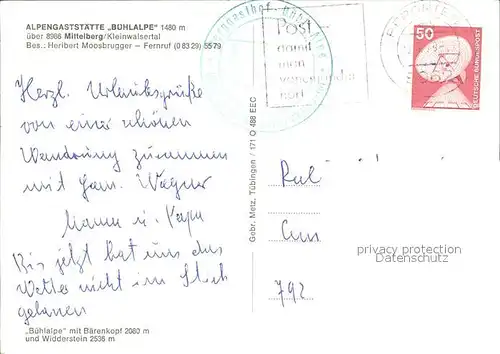 ALPENGASTSTÄTTE „BÜHLALPE" 1480 m
über 8986 Mittelberg/Kleinwalsertal
Bes.: Heribert Moosbrugger - Fernruf (0 83 29) 5579
Post -
damit
man
voneinander
hört
50
DEUTSCHE BUNDESPOST
Herzl. Urlaubsgrüße
von einer schönen
Wanderung zusammen
mit Fam. Wagner
Mama u. Papa
Bis jetzt hat uns das
Wetter nicht im Stich
gelassen
Gebr. Metz, Tübingen / 171 O 488 EEC
792
privacy protection
Datenschutz
„Bühlalpe" mit Bärenkopf 2080 m
und Widderstein 2536 m